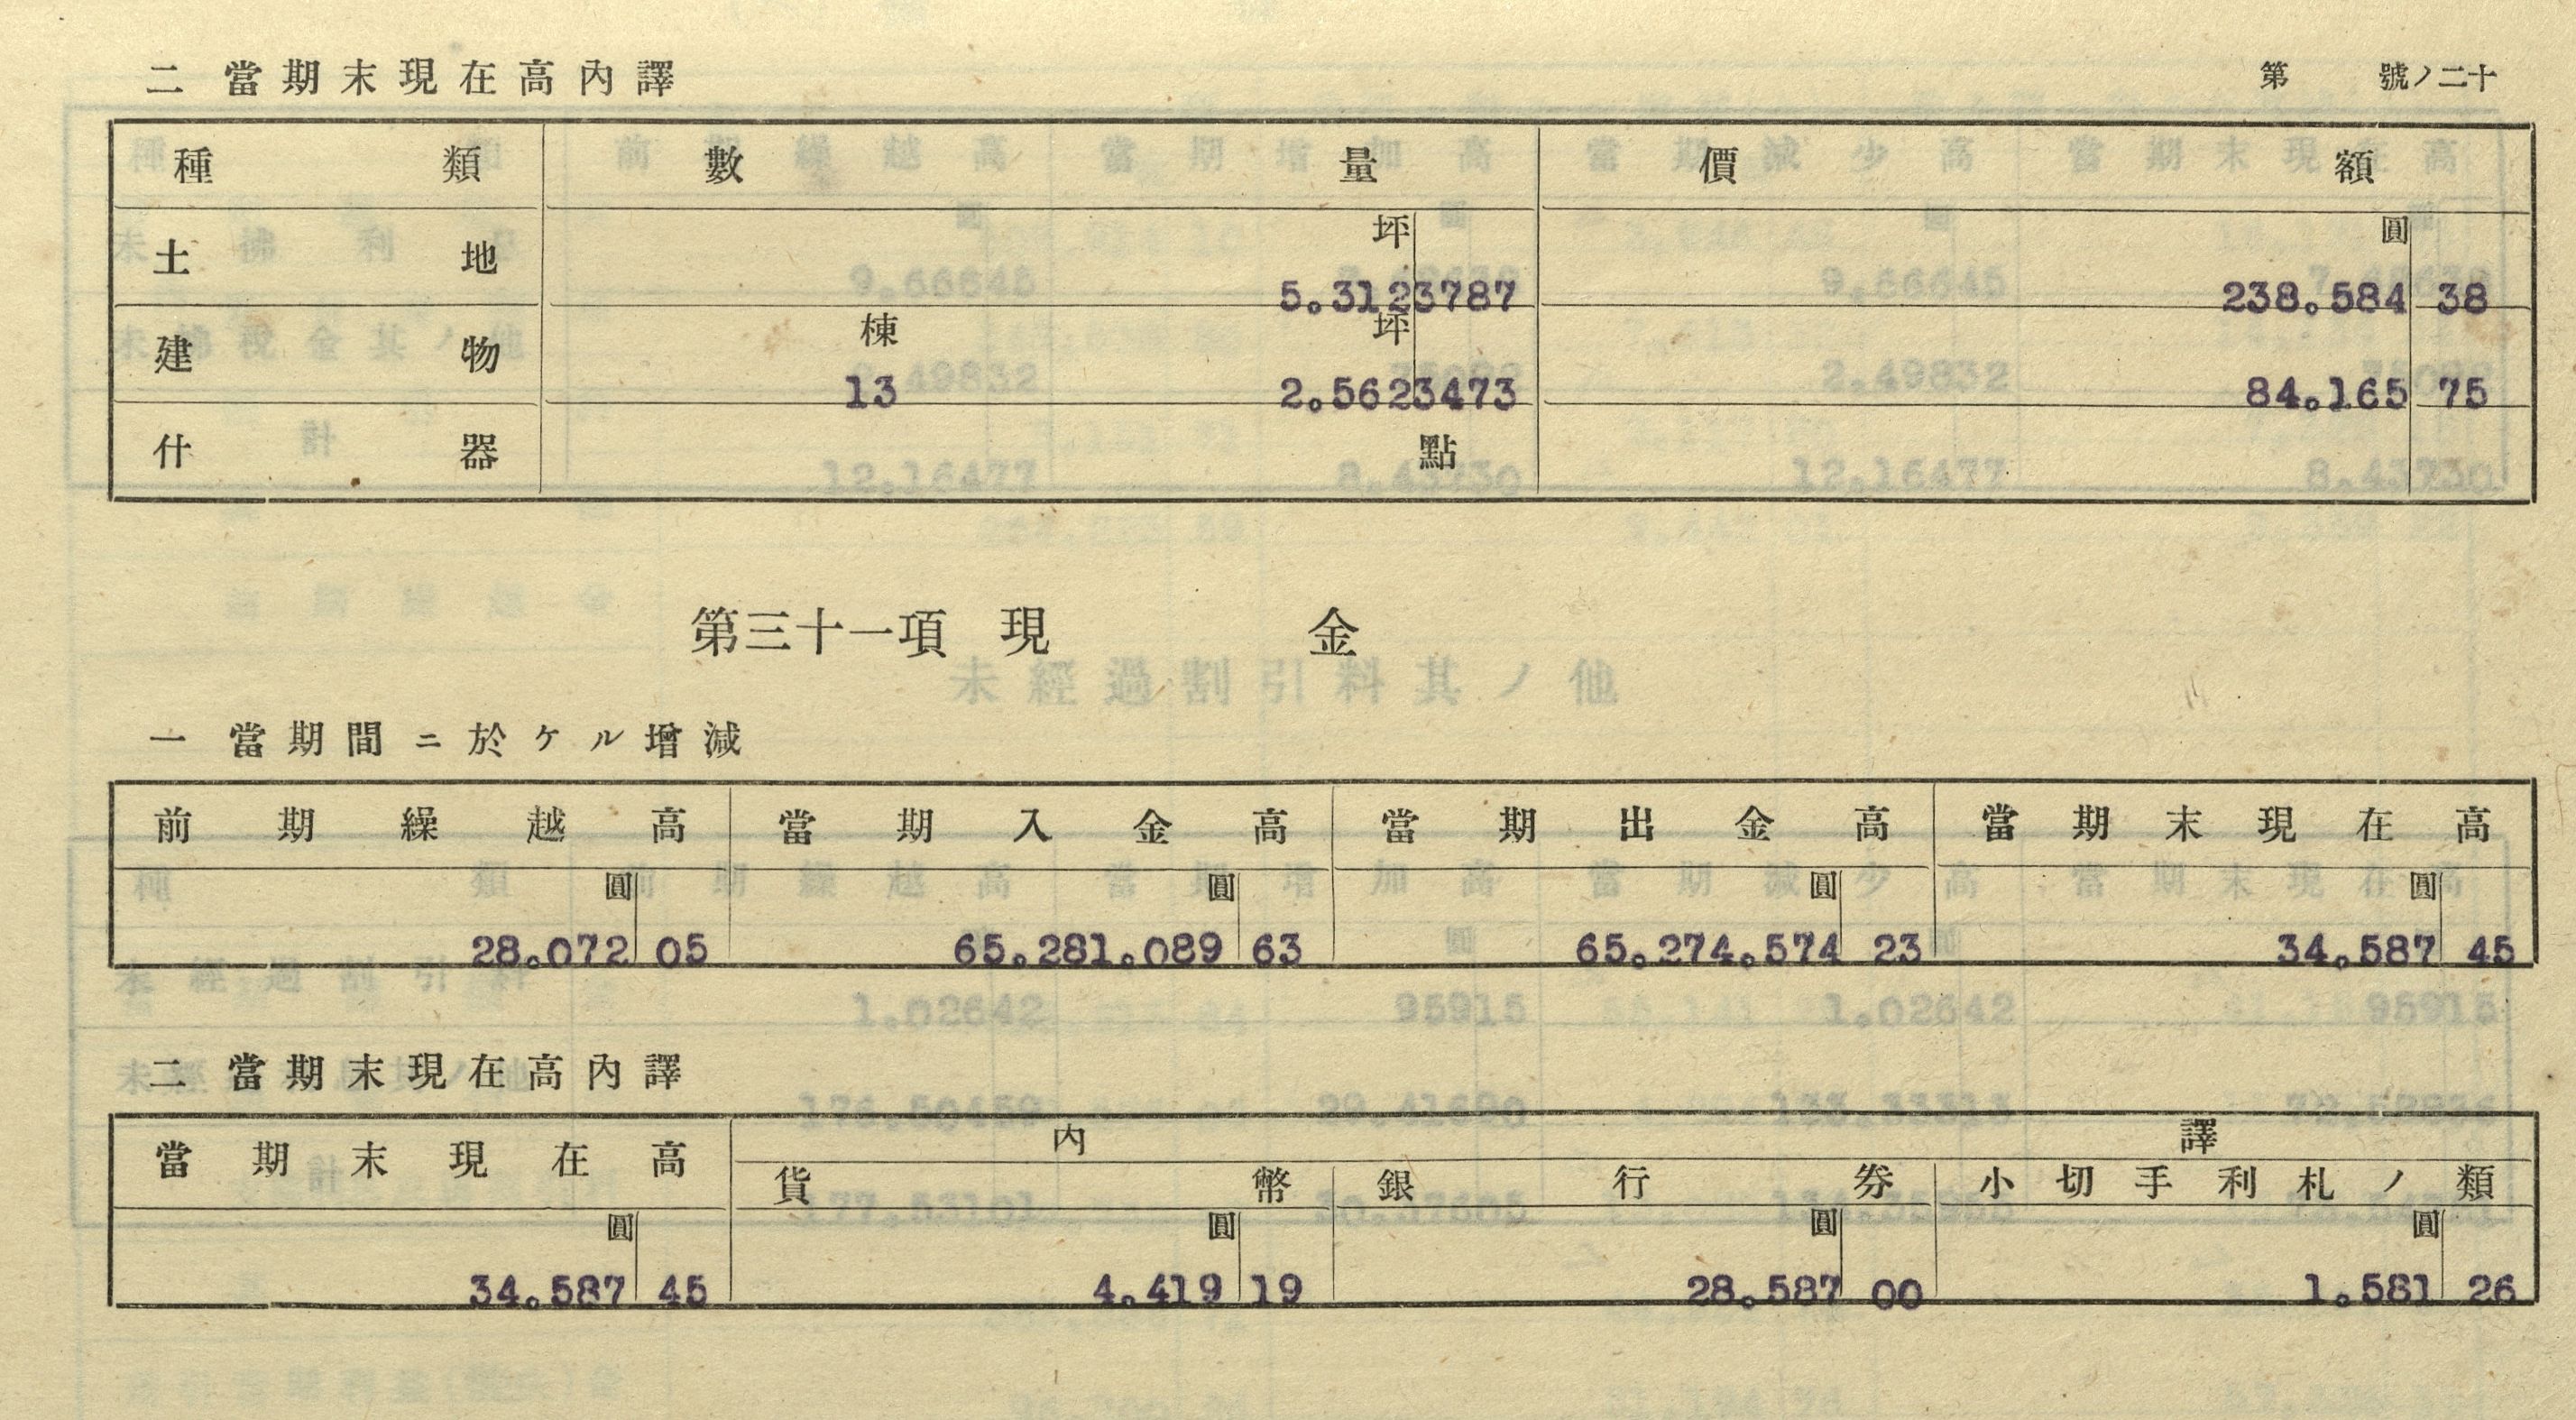 第 號ノ二十
二 當期末現在高內譯
種類 數量 價額
土地 坪 5.3123787 圓 238.584 38
建物 棟 13 坪 2.5623473 84.165 75
什器 點
第三十一項 現金
一 當期間ニ於ケル增減
前期繰越高 當期入金高 當期出金高 當期末現在高
圓 圓 圓 圓
28.072 05 65.281.089 63 65.274.574 23 34.587 45
二 當期末現在高內譯
當期末現在高 內譯
貨幣 銀行券 小切手利札ノ類
圓 圓 圓 圓
34.587 45 4.419 19 28.587 00 1.581 26
未經過割引料其ノ他